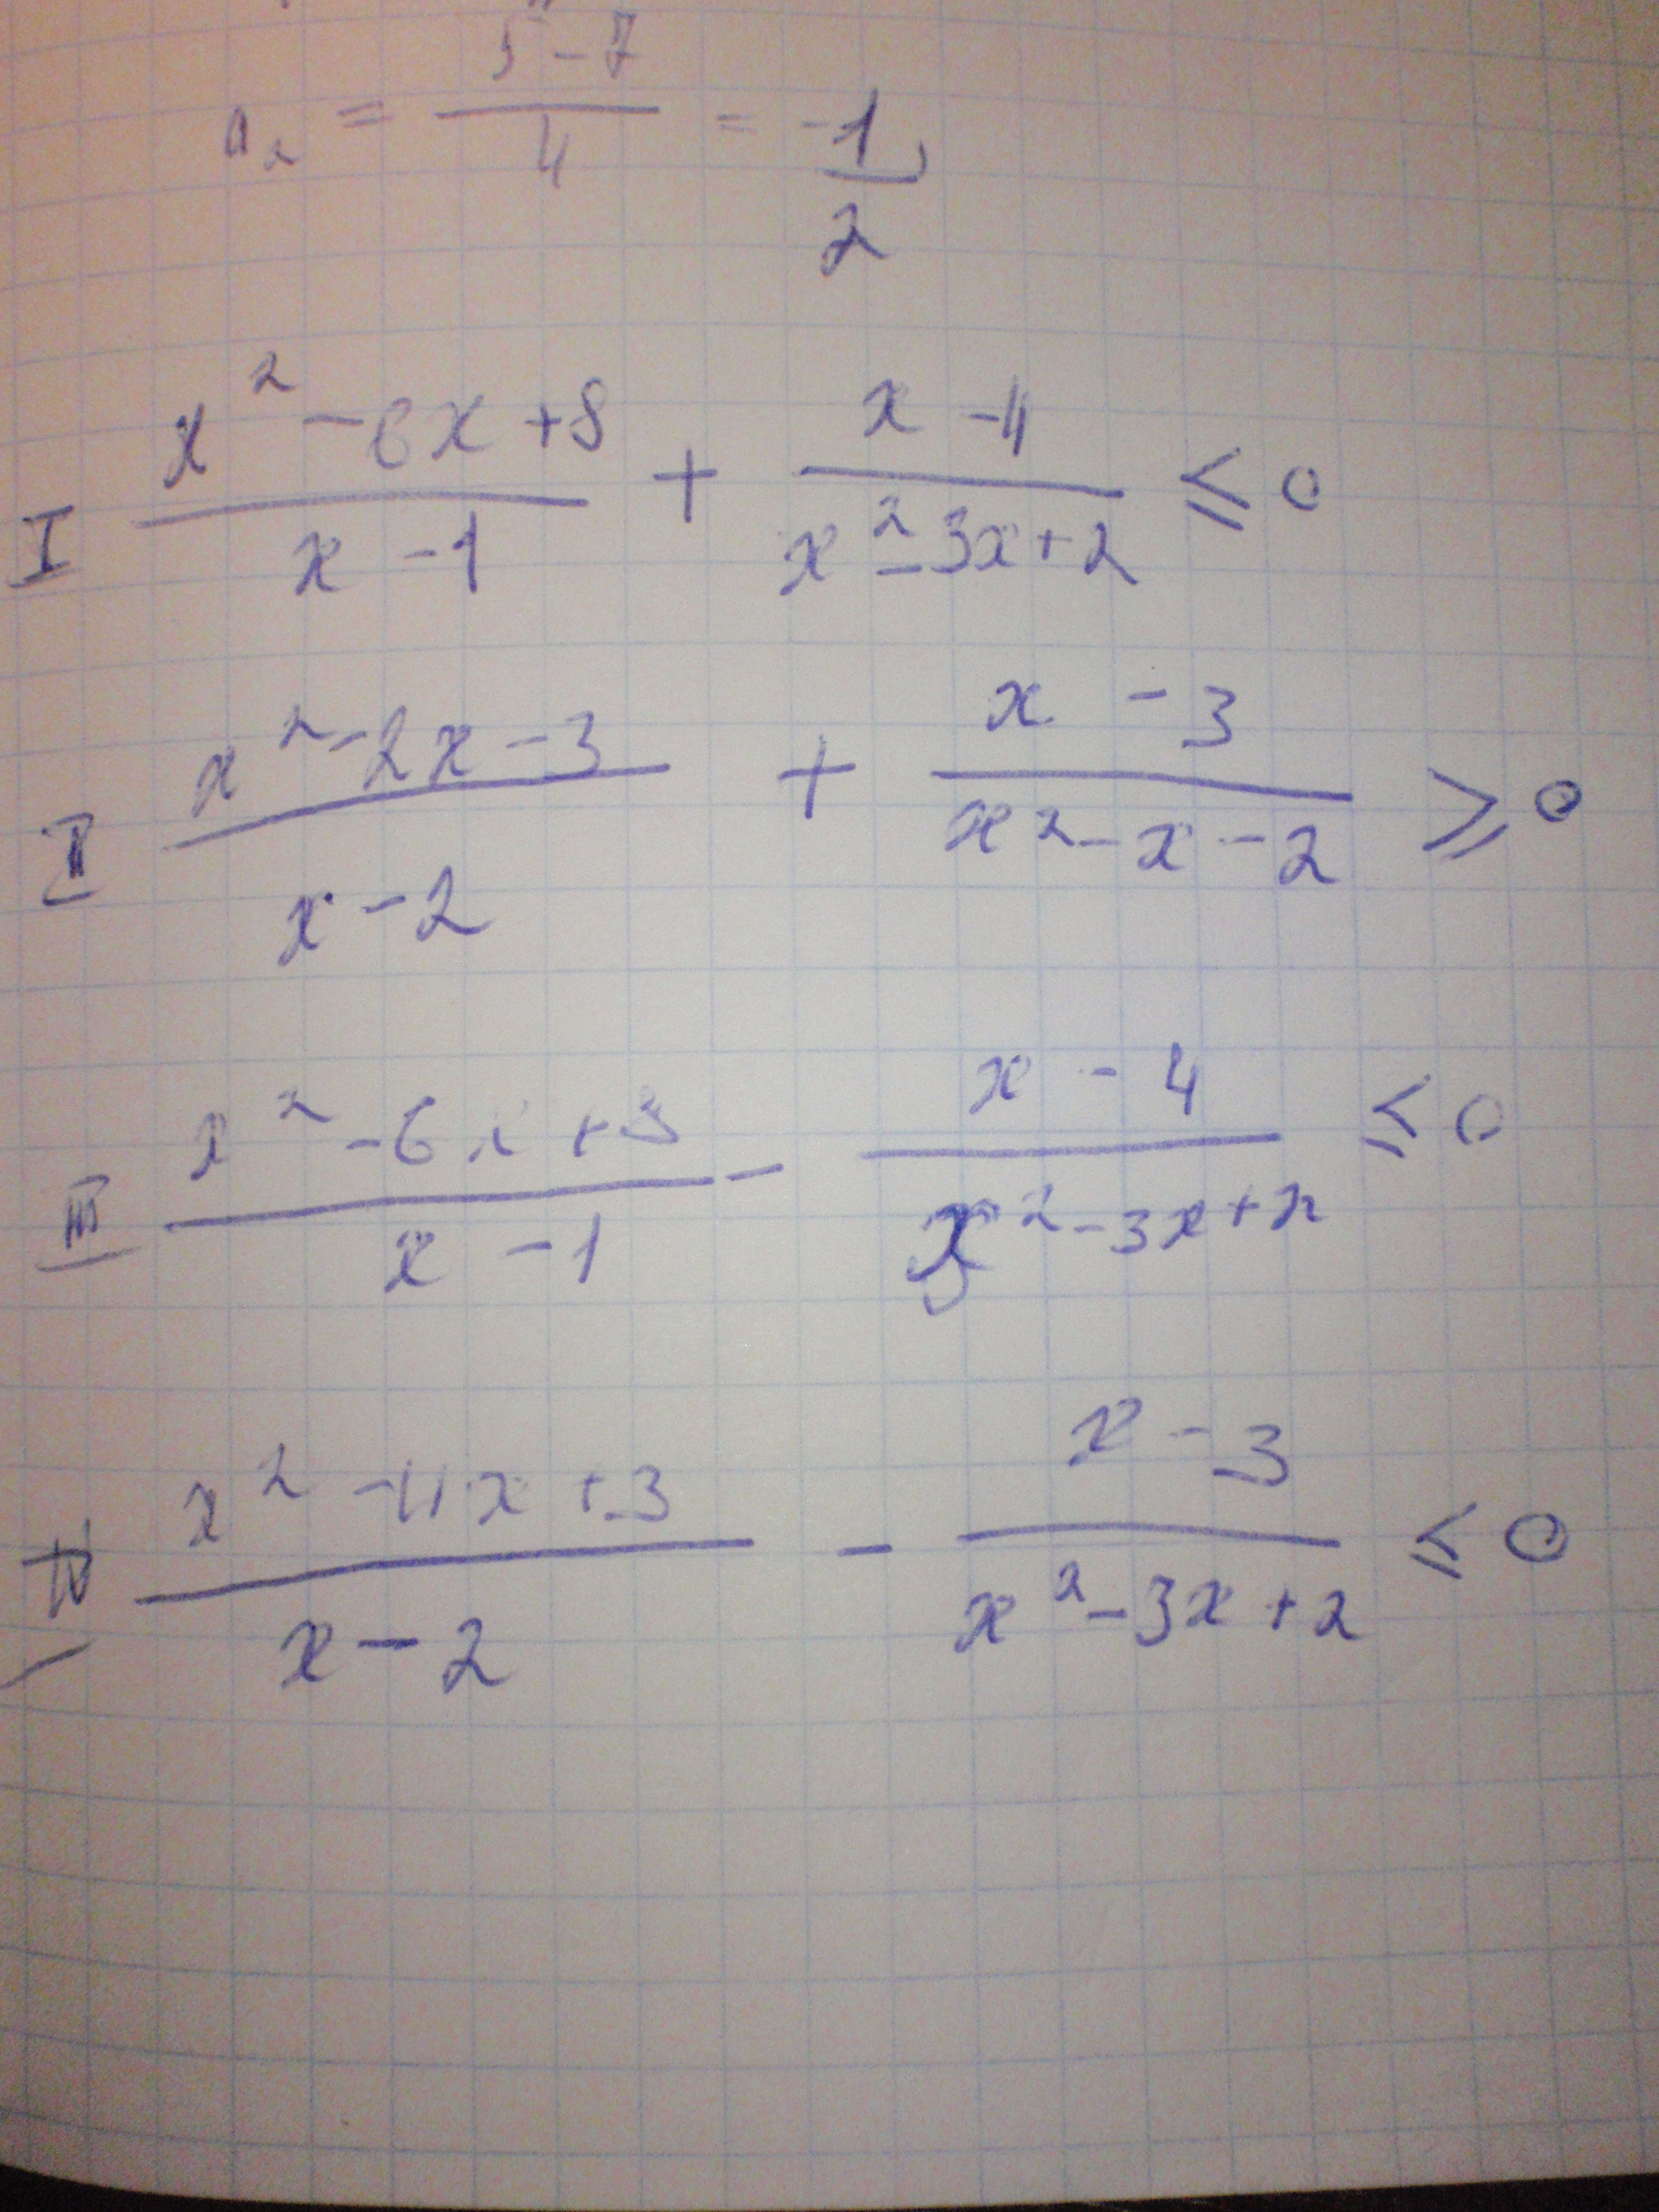 a₂ = (5-7)/4 = -1/2,
I (x² - 6x + 8)/(x - 1) + (x - 4)/(x² - 3x + 2) ≤ 0
II (x² - 2x - 3)/(x - 2) + (x - 3)/(x² - x - 2) ≥ 0
III (x² - 6x + 8)/(x - 1) - (x - 4)/(x² - 3x + 2) ≤ 0
IV (x² - 4x + 3)/(x - 2) - (x - 3)/(x² - 3x + 2) ≤ 0